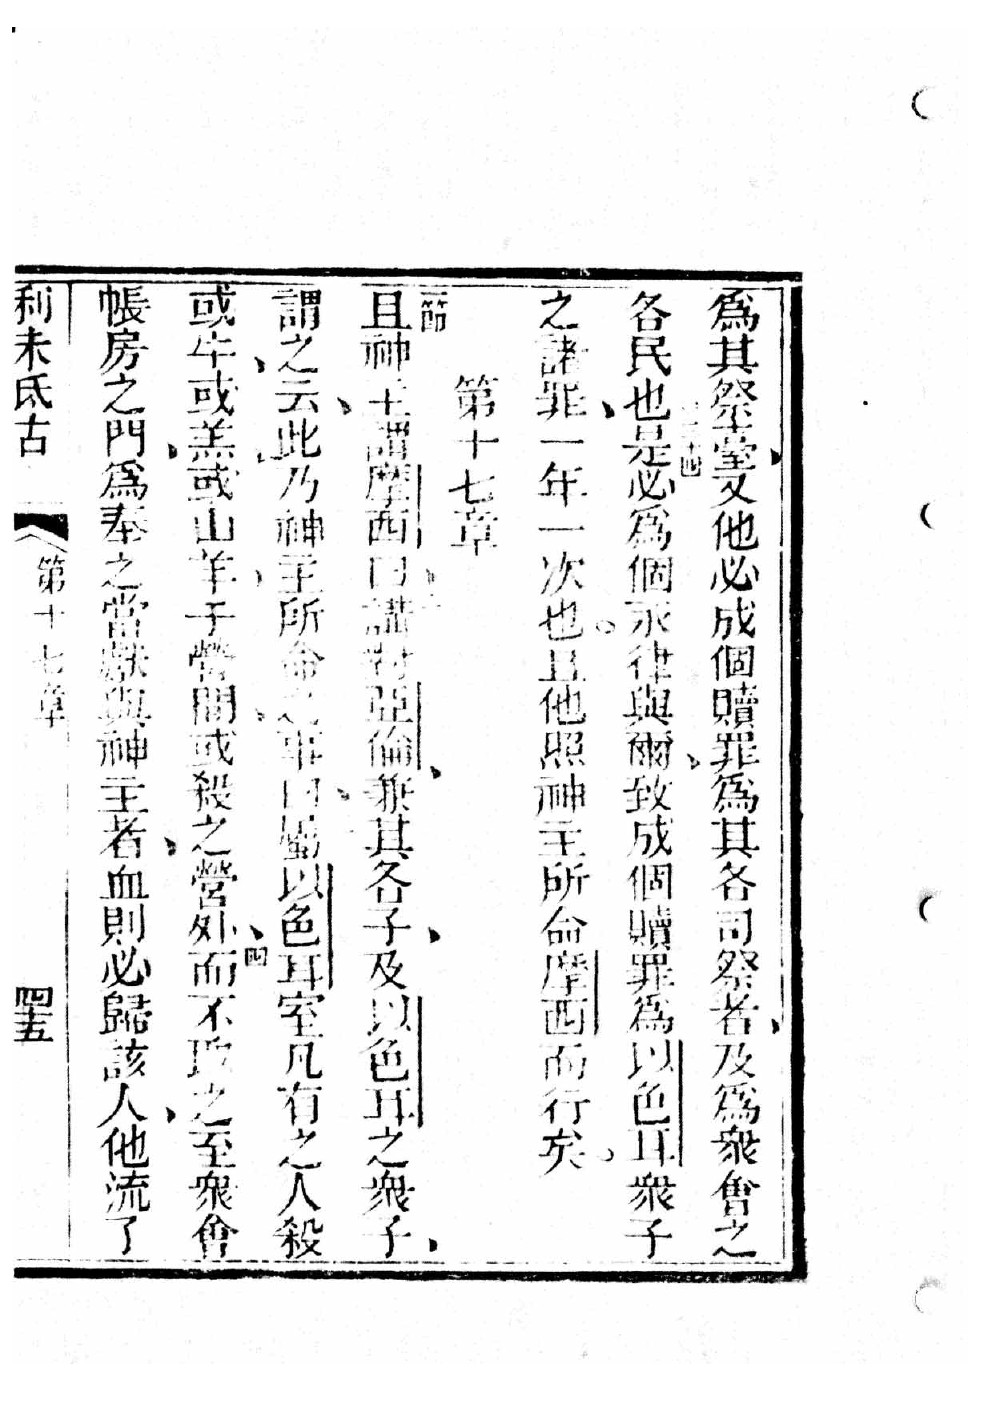 爲其祭臺又他必成個贖罪爲其各司祭者及爲衆會之
各民也三十四是必爲個永律與爾致成個贖罪爲以色耳衆子
之諸罪一年一次也且他照神主所命摩西而行矣
第十七章
一節且神主謂摩西曰二講對亞倫兼其各子及以色耳之衆子
謂之云此乃神主所命之事曰三以色耳室凡有之人殺
或牛或羔或山羊于營間或殺之營外四而不取之至衆會
帳房之門爲奉之當獻與神主者血則必歸該人他流了
利未氏古
第十七章
四五